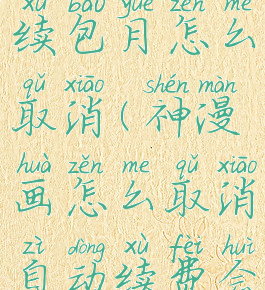 xù bāo yuè zěn me
续包月怎么
qǔ xiāo shén màn
取消(神漫
huà zěn me qǔ xiāo
画怎么取消
zì dòng xù fèi huì
自动续费会